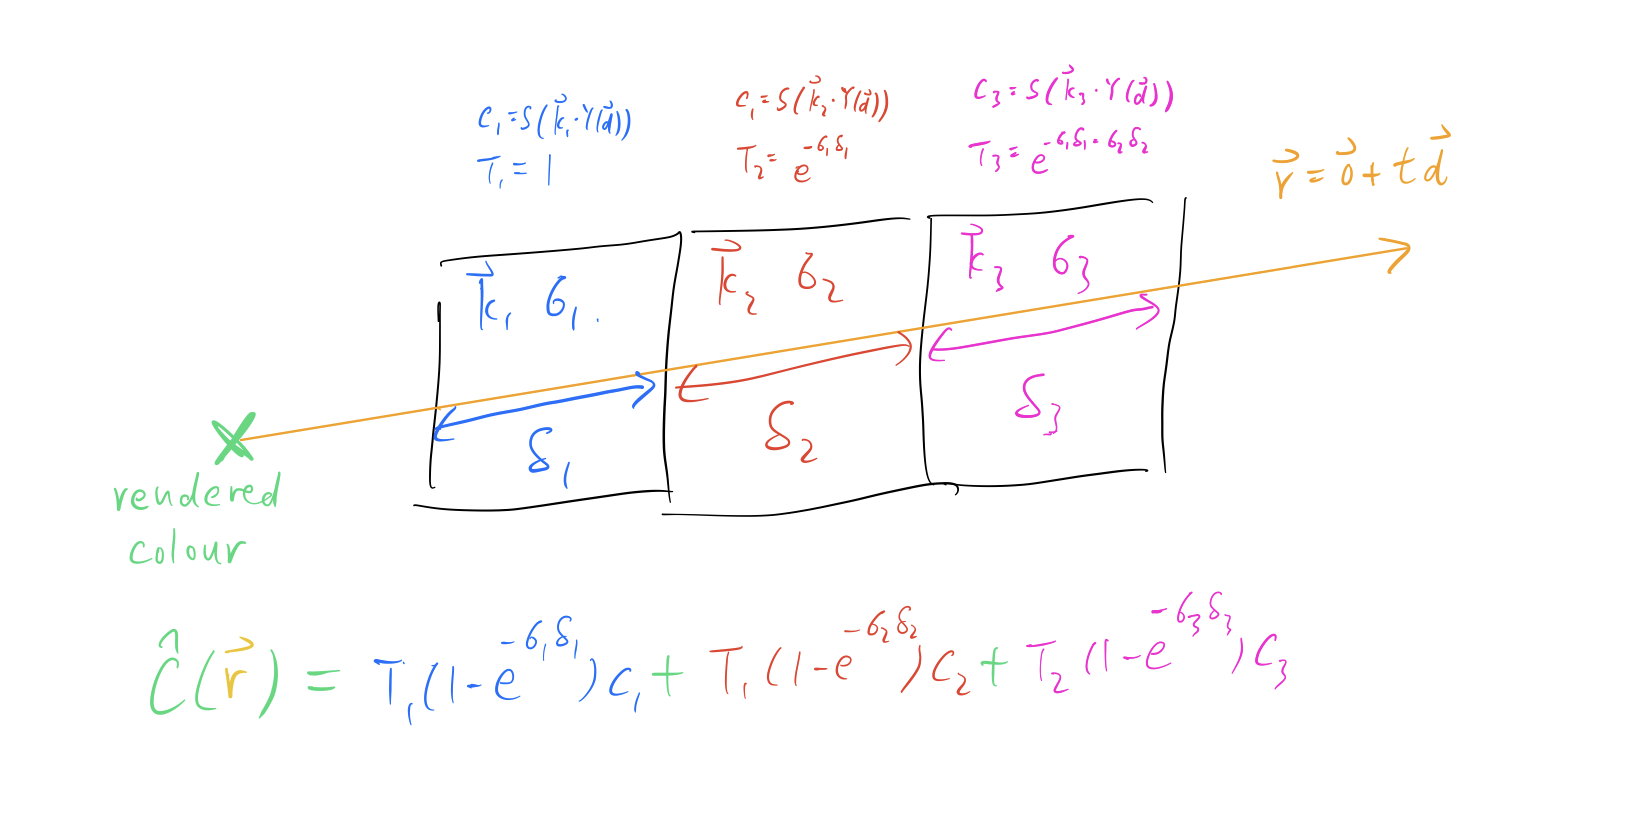 C₁=S(k⃗₁·Y(d⃗))
T₁=1
C₁=S(k⃗₂·Y(d⃗))
T₂=e^{-6₁δ₁}
C₃=S(k⃗₃·Y(d⃗))
T₃=e^{-6₁δ₁·6₂δ₂}
r⃗=o⃗+td⃗
k⃗₁ 6₁.
k⃗₂ 6₂
k⃗₃ 6₃
δ₁
δ₂
δ₃
rendered
colour
Ĉ(r⃗)=T₁(1-e^{-6₁δ₁})C₁+T₁(1-e^{-6₂δ₂})C₂+T₂(1-e^{-6₃δ₃})C₃